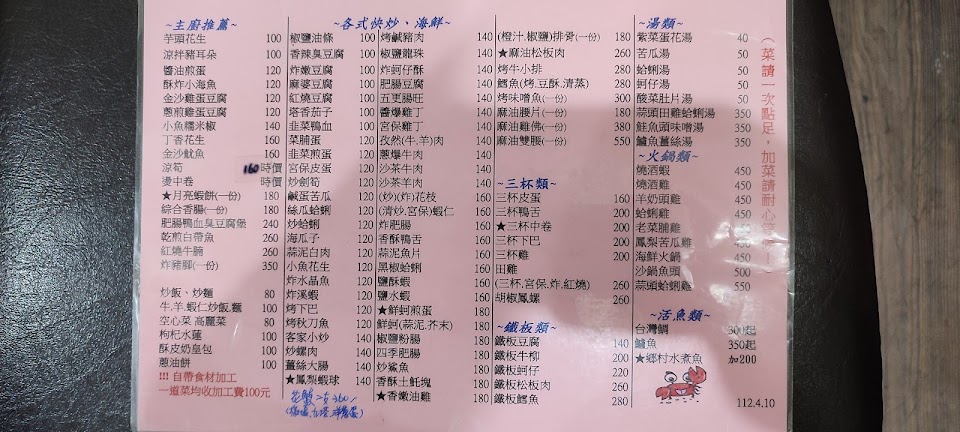 ~主廚推薦~
芋頭花生 100
涼拌豬耳朵 100
醬油煎蛋 120
酥炸小海魚 120
金沙雞蛋豆腐 120
蔥煎雞蛋豆腐 120
小魚糯米椒 140
丁香花生 140
金沙魷魚 160
涼筍 160 時價
燙中卷 時價
★月亮蝦餅(一份) 180
綜合香腸(一份) 180
肥腸鴨血臭豆腐煲 240
乾煎白帶魚 260
紅燒牛腩 260
炸豬腳(一份) 350
炒飯、炒麵 80
牛.羊.蝦仁炒飯.麵 100
空心菜 高麗菜 80
枸杞水蓮 100
酥皮奶皇包 100
蔥油餅 100
!!! 自帶食材加工
一道菜均收加工費100元
~各式快炒、海鮮~
椒鹽油條 100
香辣臭豆腐 100
炸嫩豆腐 100
麻婆豆腐 100
紅燒豆腐 100
塔香茄子 100
韭菜鴨血 100
菜脯蛋 100
韭菜煎蛋 100
宮保皮蛋 120
炒劍筍 120
鹹蛋苦瓜 120
絲瓜蛤蜊 120
炒蛤蜊 120
海瓜子 120
蒜泥白肉 120
小魚花生 120
炸水晶魚 120
炸溪蝦 120
烤下巴 120
烤秋刀魚 120
客家小炒 140
炒螺肉 140
薑絲大腸 140
★鳳梨蝦球 140
烤鹹豬肉 140
椒鹽龍珠 140
炸蚵仔酥 140
肥腸豆腐 140
五更腸旺 140
醬爆雞丁 140
宮保雞丁 140
孜然(牛.羊)肉 140
蔥爆牛肉 140
沙茶牛肉 140
沙茶羊肉 140
(炒)(炸)花枝 160
(清炒.宮保)蝦仁 160
炸肥腸 160
香酥鴨舌 160
蒜泥魚片 160
黑椒蛤蜊 160
鹽酥蝦 160
鹽水蝦 160
★鮮蚵煎蛋 180
鮮蚵(蒜泥.芥末) 180
椒鹽粉腸 180
四季肥腸 180
炒鯊魚 180
香酥土魠塊 180
★香嫩油雞 180
(橙汁.椒鹽)排骨(一份) 180
★麻油松板肉 260
烤牛小排 280
鱈魚(烤.豆酥.清蒸) 280
烤味噌魚(一份) 300
麻油腰片(一份) 380
麻油雞佛(一份) 380
麻油雙腰(一份) 550
~三杯類~
三杯皮蛋 160
三杯鴨舌 200
★三杯中卷 200
三杯下巴 200
三杯雞 200
田雞
(三杯.宮保.炸.紅燒) 260
胡椒鳳螺 260
~鐵板類~
鐵板豆腐 140
鐵板牛柳 200
鐵板蚵仔 220
鐵板松板肉 260
鐵板鱈魚 280
~湯類~
紫菜蛋花湯 40
苦瓜湯 50
蛤蜊湯 50
蚵仔湯 50
酸菜肚片湯 50
蒜頭田雞蛤蜊湯 350
鮭魚頭味噌湯 350
鱸魚薑絲湯 350
~火鍋類~
燒酒蝦 450
燒酒雞 450
羊奶頭雞 450
蛤蜊雞 450
老菜脯雞 450
鳳梨苦瓜雞 450
海鮮火鍋 450
沙鍋魚頭 500
蒜頭蛤蜊雞 550
~活魚類~
台灣鯛 300起
鱸魚 350起
★鄉村水煮魚 加200
112.4.10